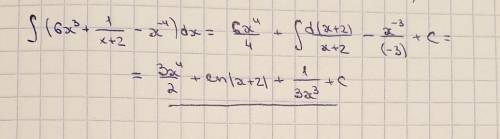 ∫(6x³ + 1/(x+2) - x⁻⁴)dx = 6x⁴/4 + ∫ d(x+2)/(x+2) - x⁻³/(-3) + C =
= 3x⁴/2 + ln|x+2| + 1/(3x³) + C